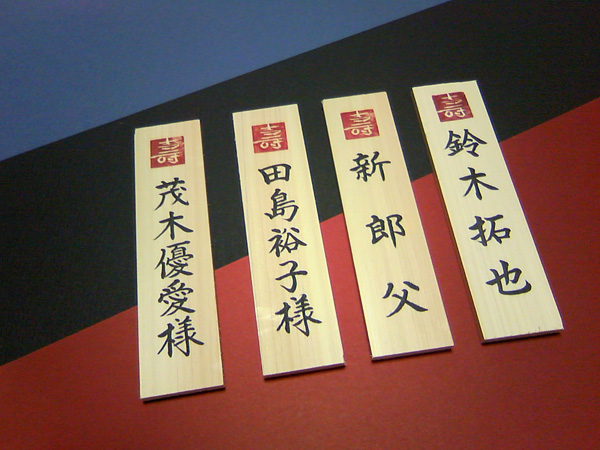 寿
茂木優愛様
寿
田島裕子様
寿
新郎父
寿
鈴木拓也